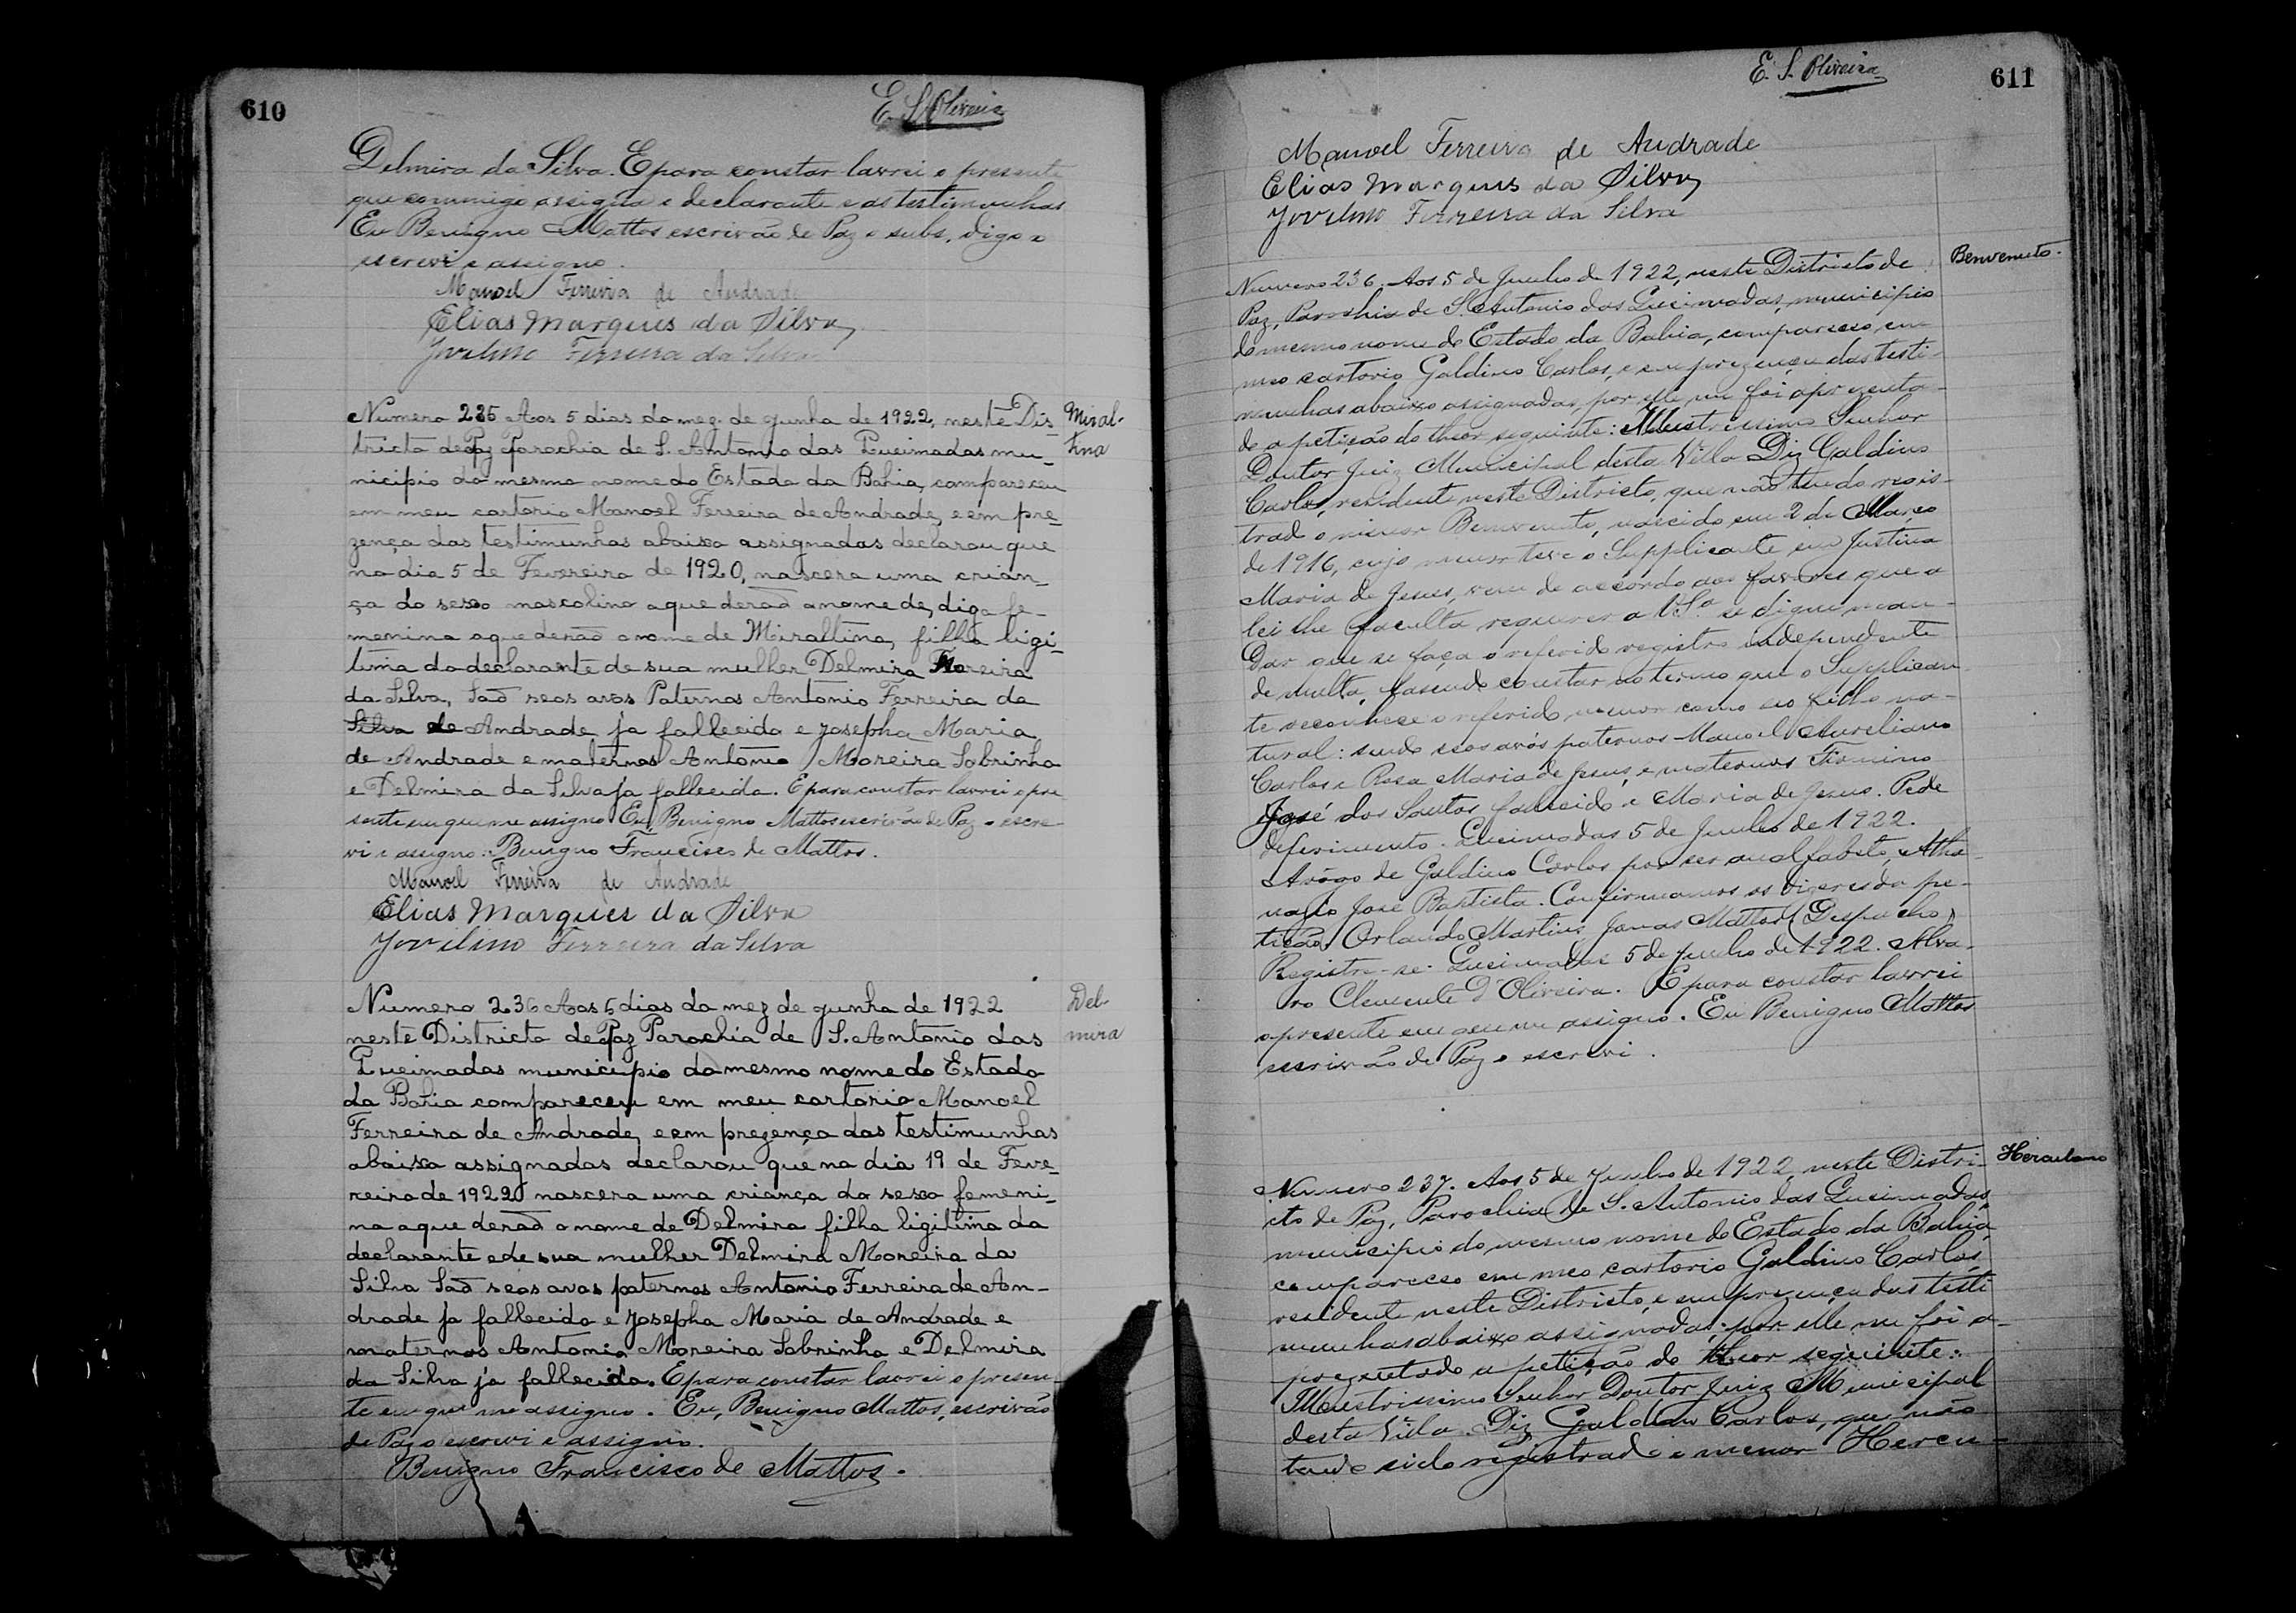 610
E. S. Oliveira
Delmira da Silva. E para constar lavrei o presente
que commigo assigna o declarante e as testimunhas
Eu Benigno Mattos escrivão de Paz o subs, digo o
escrevi e assigno.
Manoel Ferreira de Andrade
Elias Marques da Silva
Jovilino Ferreira da Silva
Miral-
tina
Numero 235 Aos 5 dias do mez de junho de 1922, neste Dis-
tricto de Paz Parochia de S. Antonio das Queimadas mu-
nicipio do mesmo nome do Estado da Bahia, compareceu
em meu cartorio Manoel Ferreira de Andrade, e em pre-
zença das testimunhas abaixo assignadas declarou que
no dia 5 de Fevereiro de 1920, nascera uma crian-
ça do sexo mascolino a que derão o nome de, digo fe-
menina a que derão o nome de Miraltina, filha ligi-
tima do declarante de sua mulher Delmira Moreira
da Silva, são seos avos Paternos Antonio Ferreira da
Silva de Andrade ja fallecido e Josepha Maria
de Andrade e maternos Antonio Moreira Sobrinho
e Delmira da Silva já fallecida. E para constar lavrei o pre
sente em que me assigno Eu, Benigno Mattos escrivão de Paz o escre-
vi e assigno. Benigno Francisco de Mattos.
Manoel Ferreira de Andrade
Elias Marques da Silva
Jovilino Ferreira da Silva
Del-
mira
Numero 236 Aos 5 dias do mez de junho de 1922
neste Districto de Paz Parochia de S. Antonio das
Queimadas municipio do mesmo nome do Estado
da Bahia compareceu em meu cartorio Manoel
Ferreira de Andrade, e em prezença das testimunhas
abaixo assignadas declarou que no dia 19 de Feve-
reiro de 1922 nascera uma criança do sexo femeni-
na a que derão o nome de Delmira filha ligitima do
declarante e de sua mulher Delmira Moreira da
Silva São seos avos paternos Antonio Ferreira de An-
drade ja fallecido e Josepha Maria de Andrade e
maternos Antonio Moreira Sobrinho e Delmira
da Silva já fallecida. E para constar lavrei o presen-
te em que me assigno. Eu, Benigno Mattos, escrivão
de Paz o escrevi e assigno.
Benigno Francisco de Mattos.
E. S. Oliveira
611
Manoel Ferreira de Andrade
Elias Marques da Silva
Jovilino Ferreira da Silva
Benvenuto.
Numero 236. Aos 5 de Junho de 1922, neste Districto de
Paz, Parochia de S. Antonio das Queimadas, municipio
do mesmo nome do Estado da Bahia, compareceo, em
meo cartorio Galdino Carlos, e em prezença das testi-
munhas abaixo assignadas, por elle me foi aprezenta-
do a petição do theor seguinte: Illustrissimo Senhor
Doutor Juiz Municipal desta Villa Diz Galdino
Carlos, residente neste Districto, que não tendo regis-
trado o menor Benvenuto, nascido em 2 de Março
de 1916, cujo menor teve o Supplicante em Justina
Maria de Jesus, vem de accordo aos favores que a
lei lhe faculta requerer a V. Sª se digne man-
dar que se faça o referido registro independente
de multa, fasendo constar no termo que o Supplican-
te reconhece o referido menor como seo filho na-
tural: sendo seos avós paternos Manoel Aureliano
Carlos e Rosa Maria de Jesus, e maternos Firmino
José dos Santos fallecido e Maria de Jesus. Pede
deferimento. Queimadas 5 de Junho de 1922.
Arôgo de Galdino Carlos por ser analfabeto, Atha-
nazio José Baptista. Confirmamos os dizeres da pe-
tição. Orlando Martins Jonas Mattos (Despacho)
Registre-se. Queimadas 5 de Junho de 1922. Alva-
ro Clemente d'Oliveira. E para constar lavrei
o presente em que me assigno. Eu Benigno Mattos
escrivão de Paz o escrevi.
Herculano
Numero 237. Aos 5 de Junho de 1922, neste Distri-
cto de Paz, Parochia de S. Antonio das Queimadas,
municipio do mesmo nome do Estado da Bahia,
compareceo em meo cartorio Galdino Carlos,
residente neste Districto, e em prezença das testi
munhas abaixo assignadas, por elle me foi a-
prezentado a petição do theor seguinte:
Illustrissimo Senhor Doutor Juiz Municipal
desta Villa. Diz Galdino Carlos, que não
tendo sido registrado o menor Hercu-